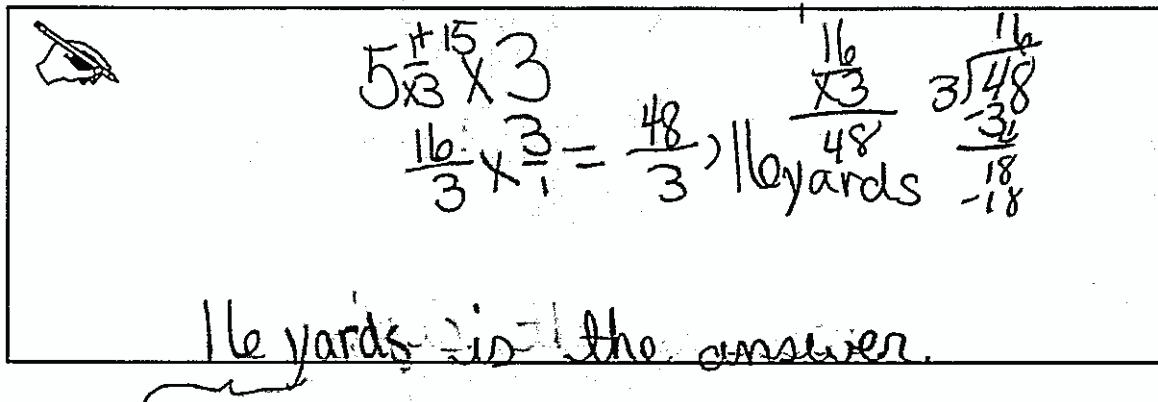 5 1/3 +15 × 3
×3
16/3 × 3/1 = 48/3, 16 yards
16
×3
48
16
3)48
-3↓
18
-18
16 yards is the answer.